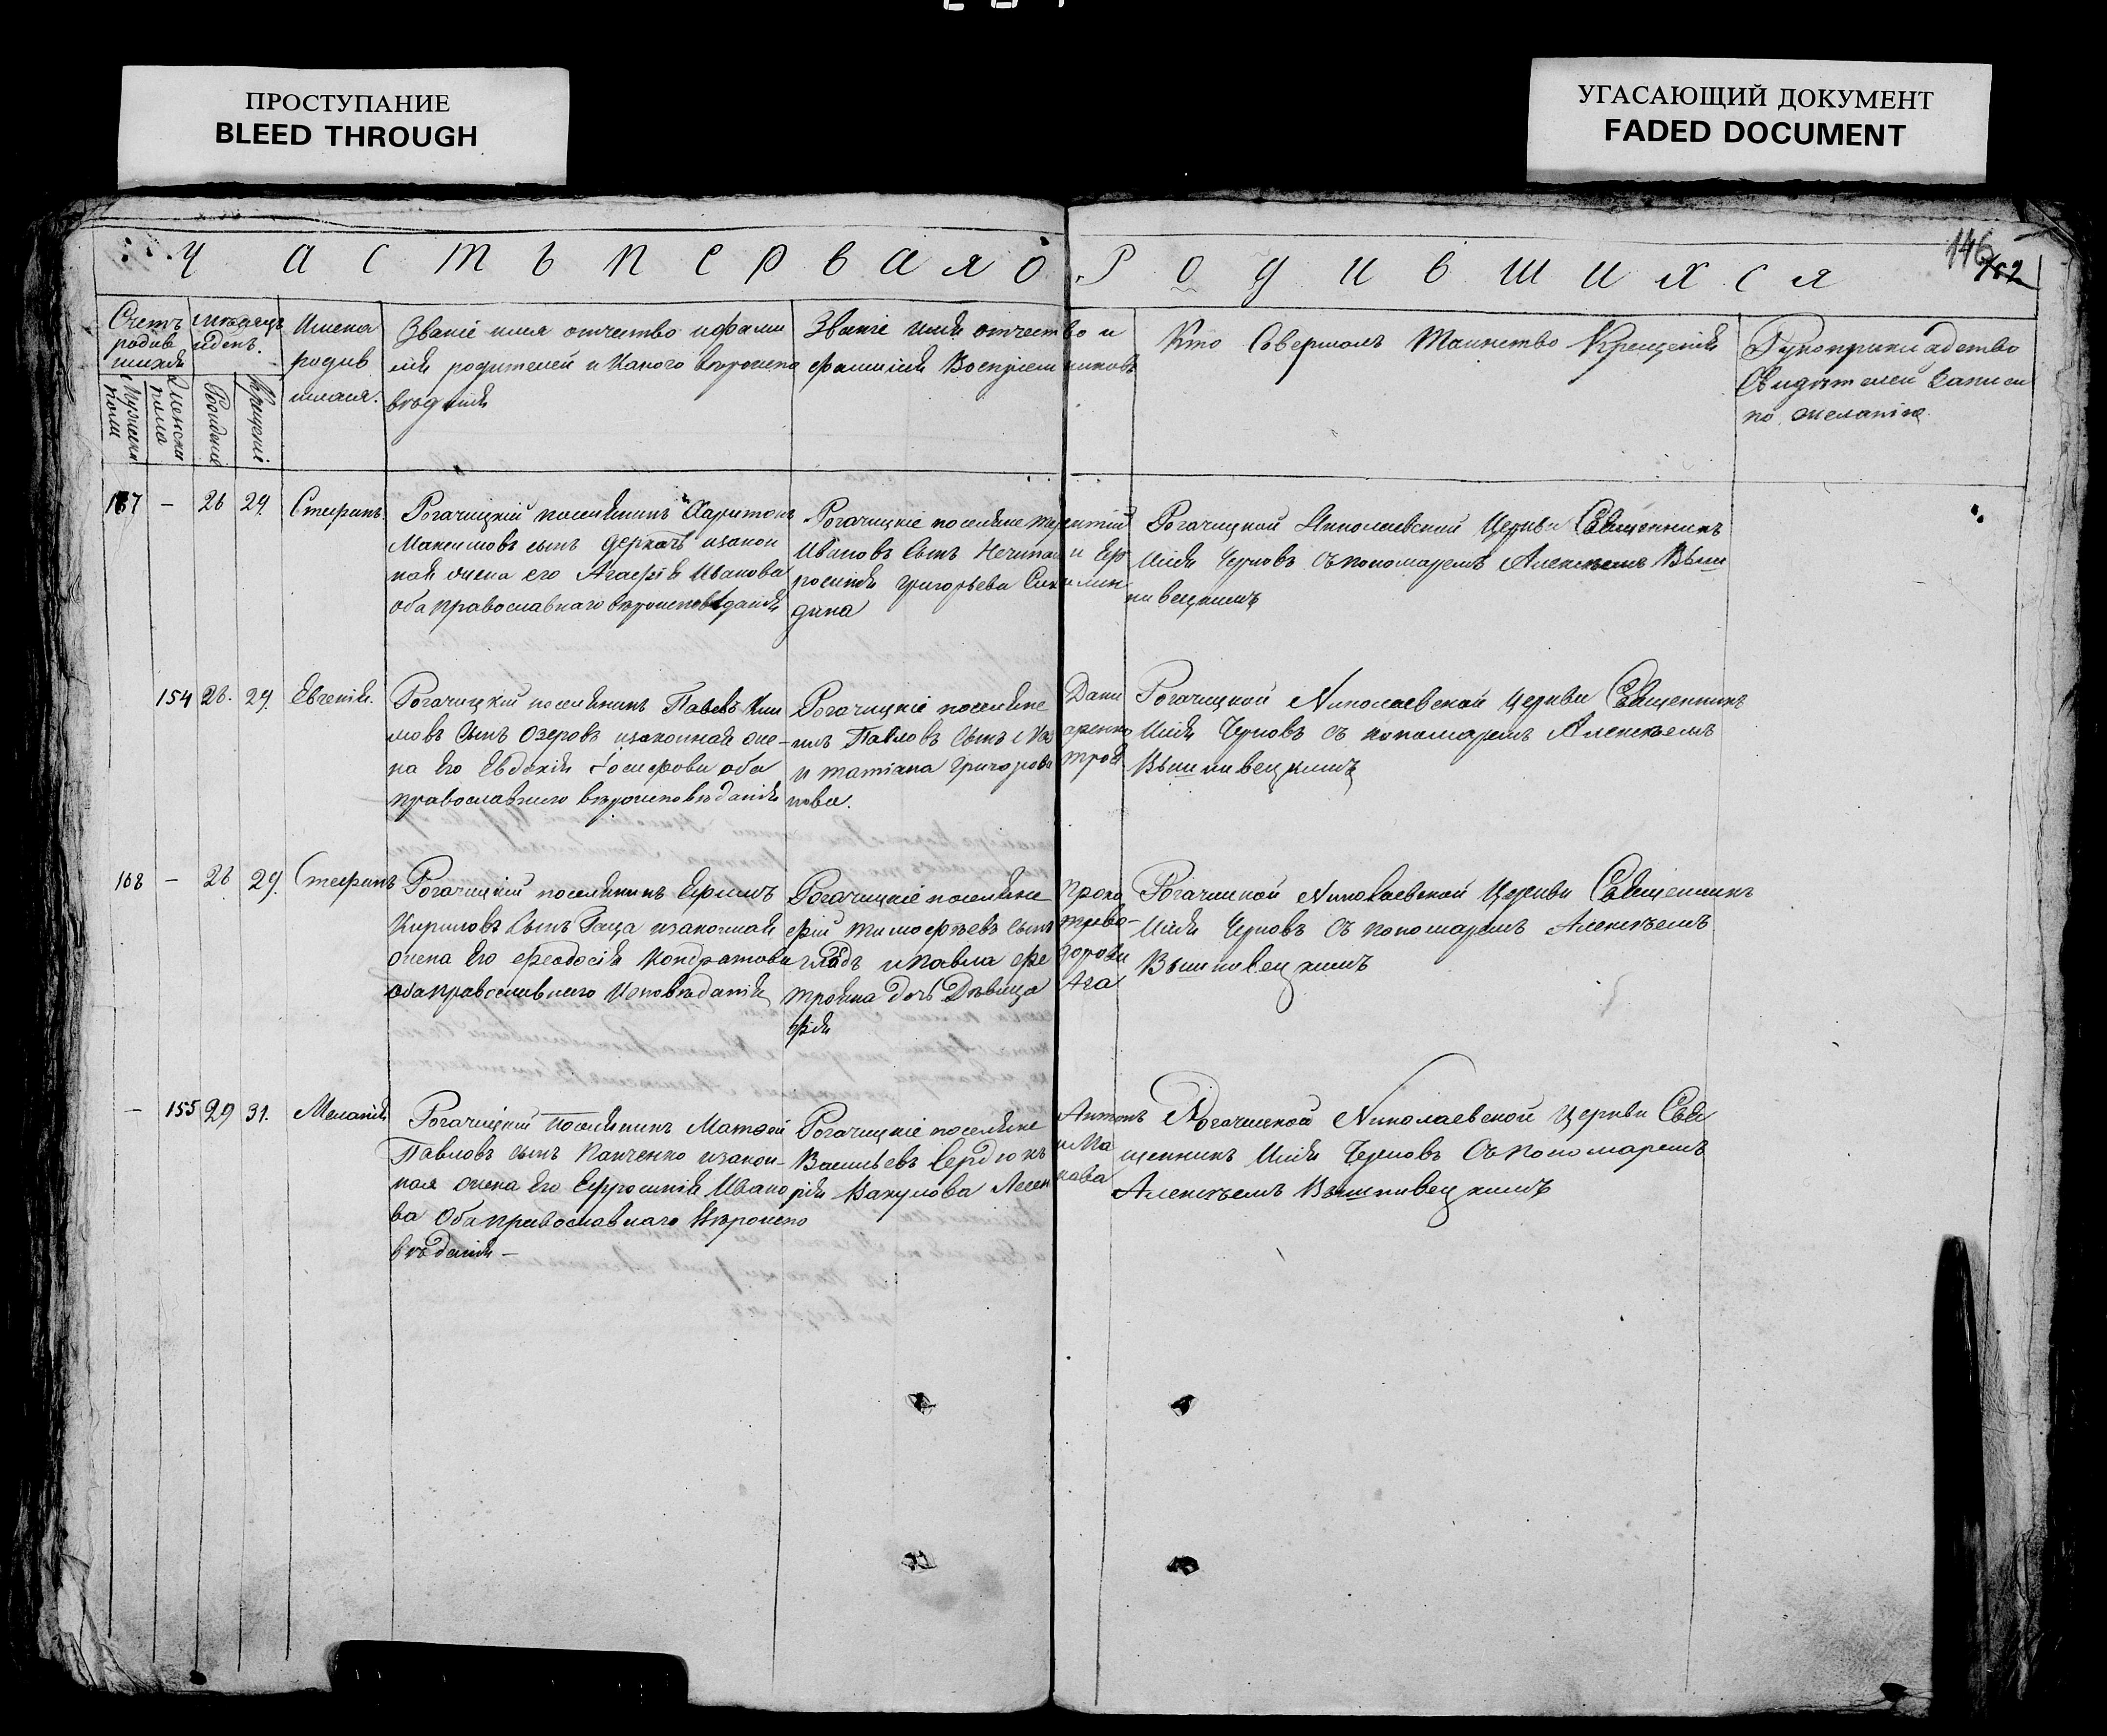 ПРОСТУПАНИЕ
BLEED THROUGH
УГАСАЮЩИЙ ДОКУМЕНТ
FADED DOCUMENT
Часть перва я о Родившихся
146
Счетъ родив шихся
мѣсяцъ и день.
Мужеска пола
Женска пола
Рожденія
Крещенія
Имена
родив
шихся.
Званіе имя отчество и фами
лія родителей и какого вѣроиспо
вѣданія
Званіе имя отчество и
фамилія Воспріемниковъ
Кто Совершалъ Таинство Крещенія
Рукоприкладство
Свидѣтелей записи
по желанію
167 – 26 29 Стефанъ.
Рогачицкій поселянинъ Харитонъ
Максимовъ сынъ Деркачъ изакон
ная жена его Агафія Иванова
оба православнаго вѣроисповѣданія
Рогачицкіе поселяне Терентій
Ивановъ Сынъ и Еф
росинія Григорьева
дина
Рогачицкой Николаевской Церкви Священникъ
Илія Черновъ съ пономаремъ Алексѣемъ Виш
нивецкимъ
154 26. 29. Евгенія.
Рогачицкій поселянинъ Павелъ Кли
мовъ Сынъ Озеровъ изаконная же
на Его Евдокія Іосифова оба
православнаго вѣроисповѣданія
Рогачицкіе поселяне Дани
илъ Павловъ Сынъ
и татіана Григорова
нова.
Рогачицкой Николаевской Церкви Священникъ
Илія Черновъ съ пономаремъ Алексѣемъ
Вишнивецкимъ
168 – 26 29. Стефанъ
Рогачицкій поселянинъ Ефимъ
Кириловъ Сынъ Гаща изаконная
жена Его Феодосія Кондратова
оба православнаго Исповѣданія
Рогачицкіе поселяне Проко
фій Тимофѣевъ Сынъ
и Павла
дочь Дѣвица Ага
фія
Рогачицкой Николаевской Церкви Священникъ
Илія Черновъ Съ пономаремъ Алексѣемъ
Вишнивецкимъ
– 155 29 31. Меланія
Рогачицкій Поселянинъ Матѳей
Павловъ сынъ Панченко изакон
ная жена Его Ефросинія Ивано
ва Оба православнаго Вѣроиспо
вѣданія –
Рогачицкіе поселяне Антонъ
Васильевъ Сердюкъ и Ма
рія Вакулова
Рогачицкой Николаевской Церкви Свя
щенникъ Илія Черновъ Съ пономаремъ
Алексѣемъ Вишнивецкимъ